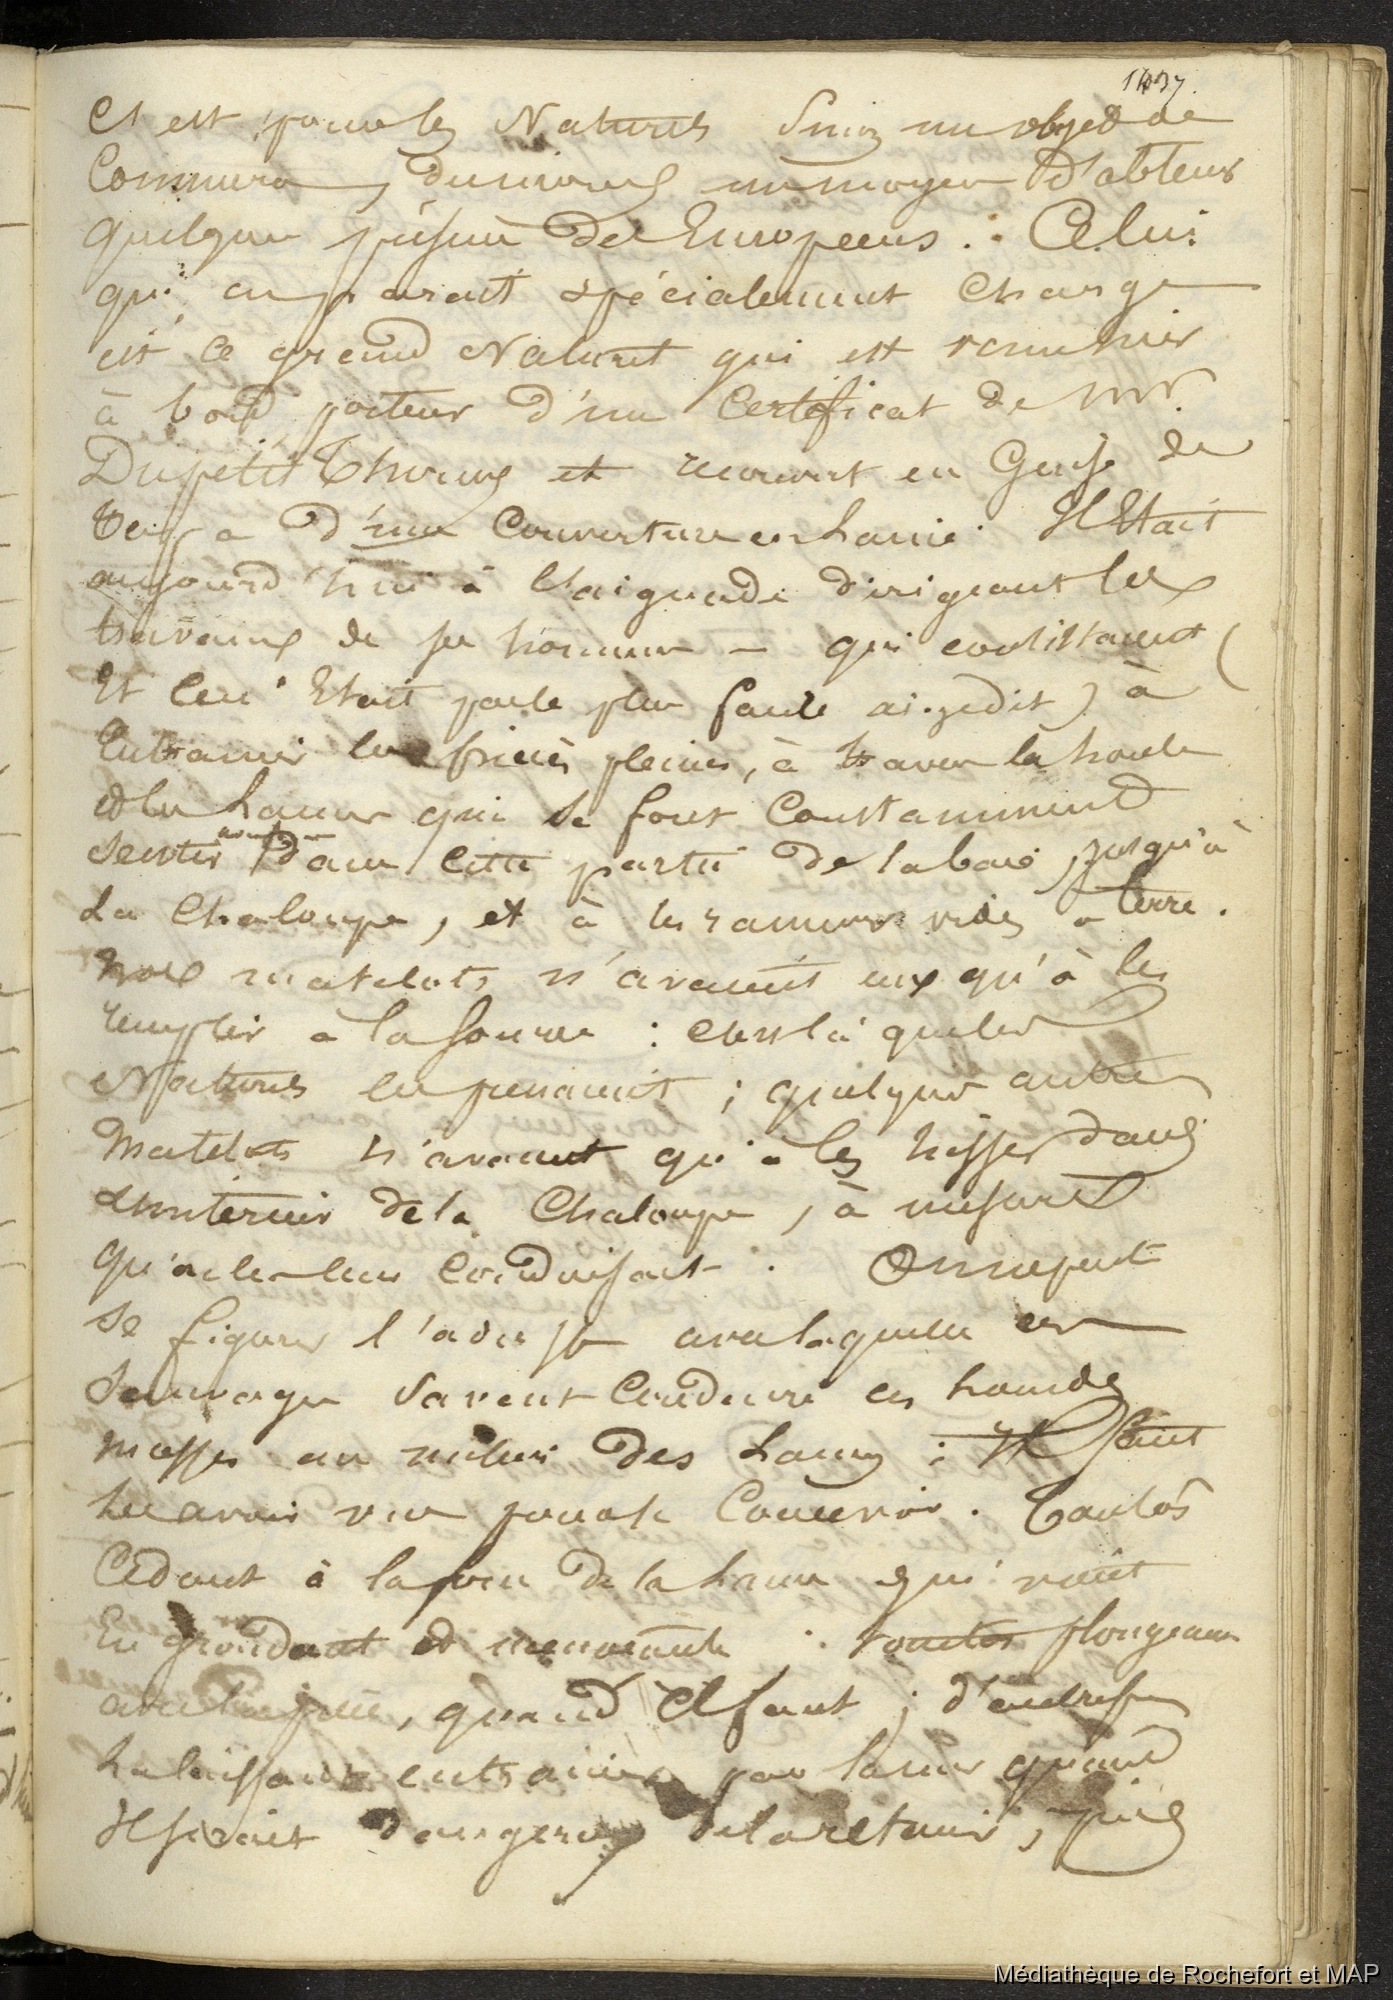 1437.
et est pour les Naturels sinon un objet de
Commerce, du moins un moyen d'obtenir
quelques présens des Européens. Celui
qui en parait spécialement chargé
est ce grand Naturel qui est venu hier
à bord porteur d'un Certificat de Mr.
Dupetit Thouars et recouvert en Guise de
d'une Couverture en laine. Il Etait
aujourd'hui à l'aiguade dirigeant les
travaux de ses hommes — qui consistaient (
Et ceci Etait pour le plus facile ai-je dit) à
Entrainer les pièces pleines, à travers la houle
et les lames qui se font Constamment
sentir dans cette partie de la baie, jusqu'à
La Chaloupe, et à les ramener vides à terre.
nos matelots n'avaient eux qu'à les
remplir à la source : c'est là que les
Naturels les prenaient ; quelques autres
Matelots n'avaient qu'à les hisser dans
l'intérieur de la Chaloupe, à mesure
qu'on les leur Conduisait. On ne peut
se figurer l'adresse avec laquelle ces
Sauvages savent Conduire ces lourdes
masses au milieu des lames ; Il faut
les avoir vus pour le Concevoir. Tantôt
Cédant à la force de la lame qui vient
En grondant et menaçante ; tantôt plongeant
avec la pièce, quand il faut ; d'autrefois
la laissant entrainer par la mer quand
Il serait dangereux de la retenir, puis
Médiathèque de Rochefort et MAP